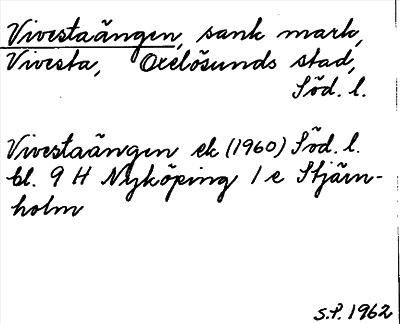 Vivestaängen, sank mark,
Vivesta, Oxelösunds stad,
Söd. l.
Vivestaängen ek (1960) Söd. l.
bl. 9 H Nyköping 1 e Stjärn-
holm
S.P. 1962